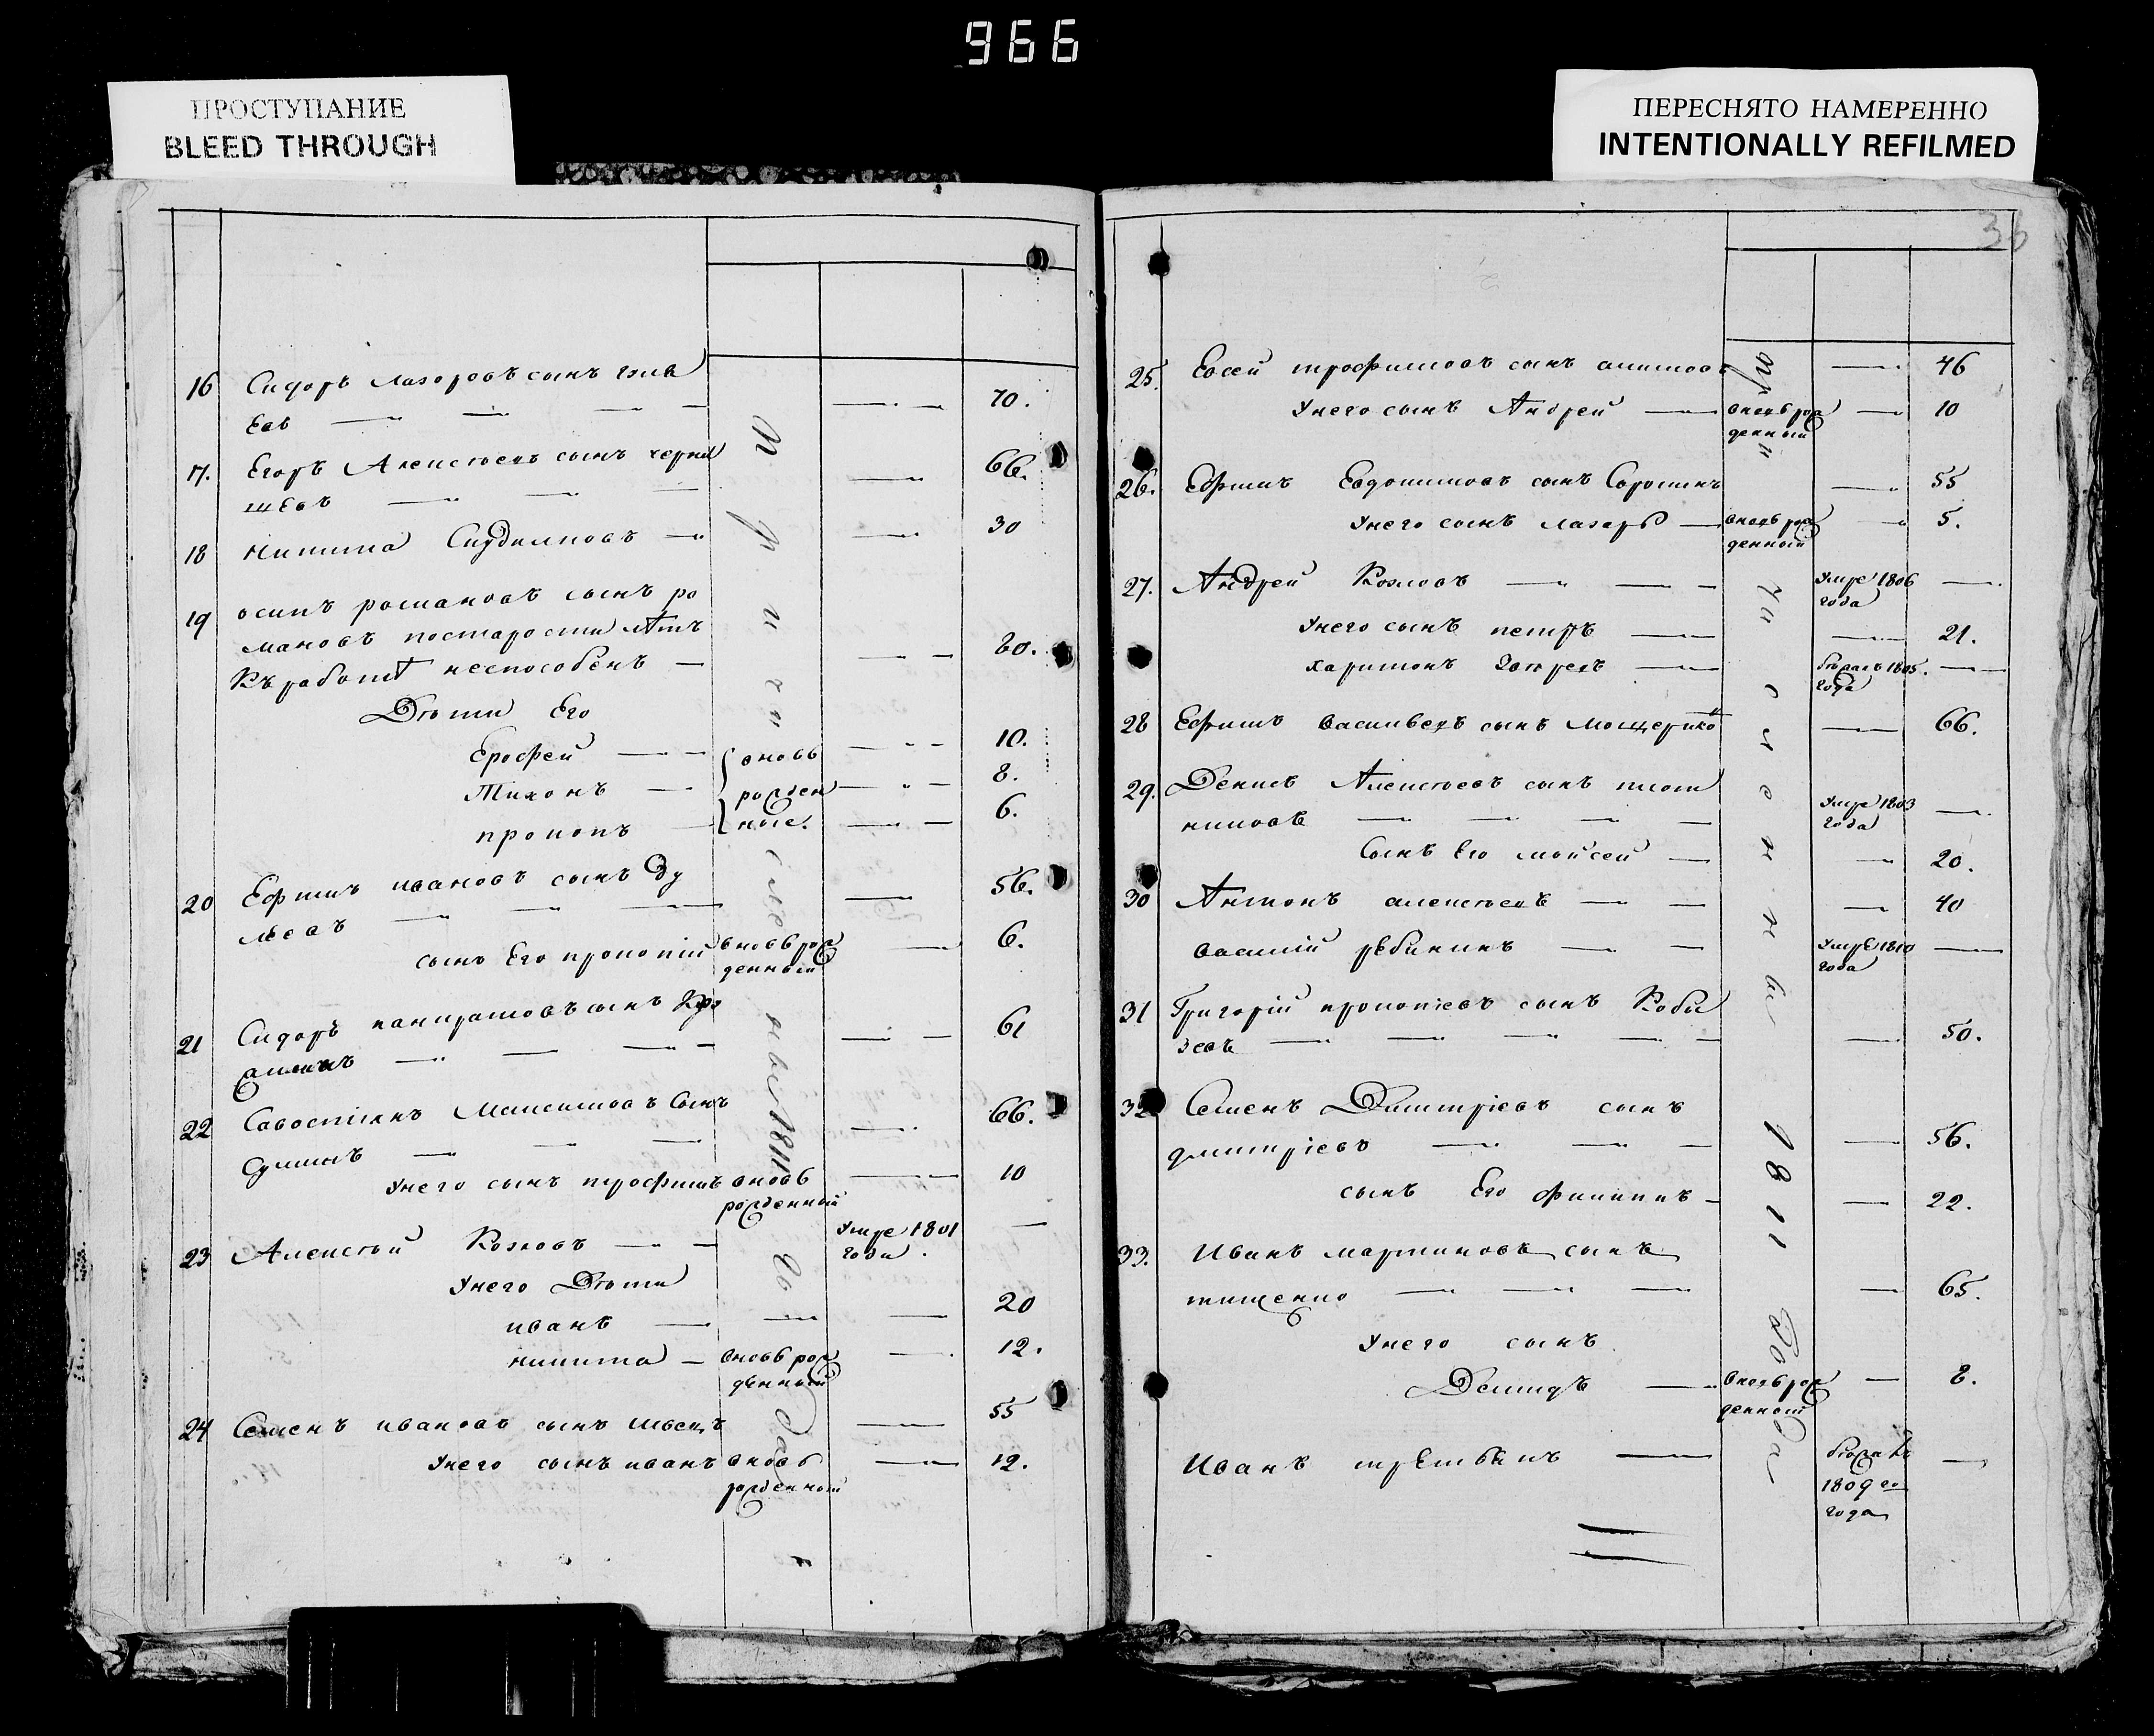 966
ПРОСТУПАНИЕ
BLEED THROUGH
ПЕРЕСНЯТО НАМЕРЕННО
INTENTIONALLY REFILMED
36
16 Сидоръ Лазоровъ сынъ
евъ 70.
17. Егоръ Алексѣевъ сынъ черни
шевъ 66.
18 Никита 30
19 осипъ романовъ сынъ ро
мановъ постарости лѣтъ
Къ работѣ неспособенъ 60.
Дѣти Его
Ерофей вновь 10.
Тихонъ рожден 8.
прокопъ ные. 6.
20 Ефимъ ивановъ сынъ
56.
сынъ Его прокопій вновь рож 6.
денный
21 Сидоръ панкратовъ сынъ
61
22 Савостіянъ Максимовъ Сынъ
66.
Унего сынъ трофимъ вновь 10
рожденный
23 Алексѣй Козловъ Умре 1801
года.
Унего Дѣти
иванъ 20
никита вновь рож 12.
денный
24 Семенъ ивановъ сынъ швецъ 55
Унего сынъ иванъ вновь 12.
рожденный
1811 года
25. Евсей трофимовъ сынъ акимовъ 46
Унего сынъ Андрей вновь рож 10
денный
26. Ефимъ Евдокимовъ сынъ Сорокинъ 55
Унего сынъ лазарь вновь рож 5.
денный
27. Андрей Козловъ Умре 1806
года
Унего сынъ петръ 21.
харитонъ бѣжалъ 1805.
года
28 Ефимъ Васильевъ сынъ 66.
29. Денисъ Алексѣевъ сынъ плот
никовъ Умре 1803
года
Сынъ Его мойсей 20.
30 Антонъ алексѣевъ 40
василій рѣбинкинъ Умре 1810
года
31 Григорій прокопіевъ сынъ Кобы
зевъ 50.
32 Семенъ Димитріевъ сынъ
дмитріевъ 56.
сынъ Его филипъ 22.
33. Иванъ мартиновъ сынъ
тищенко 65.
Унего сынъ
Демидъ вновь рож 8.
денный
Иванъ бѣжалъ
1809 го
года
1811 года